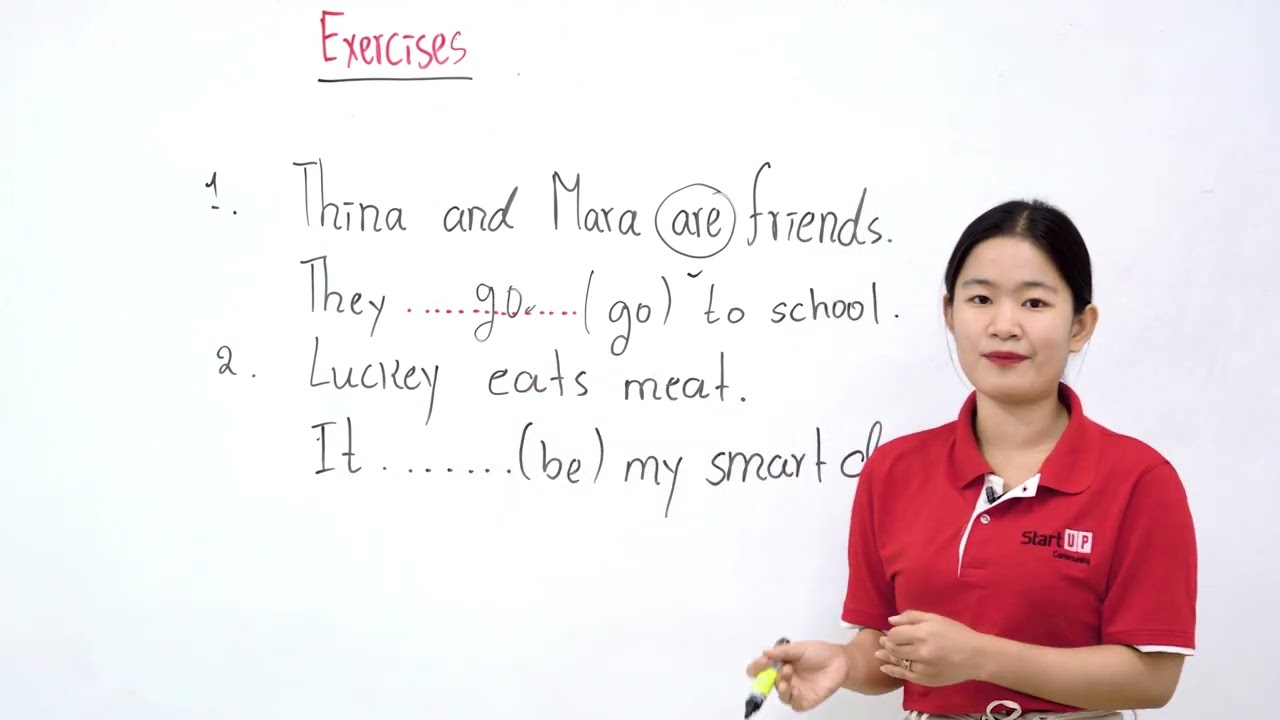 Exercises
1. Thina and Mara are friends.
They .....go.....(go) to school.
2. Luckey eats meat.
It ........(be) my smart
StartUP
Community